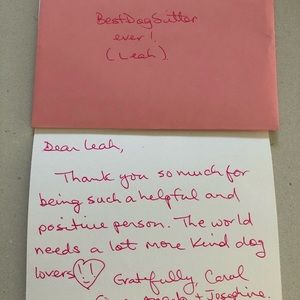 BestDogSitter
ever!
(Leah)
Dear Leah,
Thank you so much for
being such a helpful and
positive person. The world
needs a lot more kind dog
lovers!! Gratefully, Carol
+ Josephine